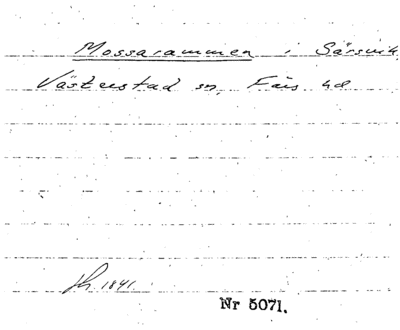 Mossarammen i Särsvik,
Västerstad sn, Färs hd
1841.
Nr 5071.